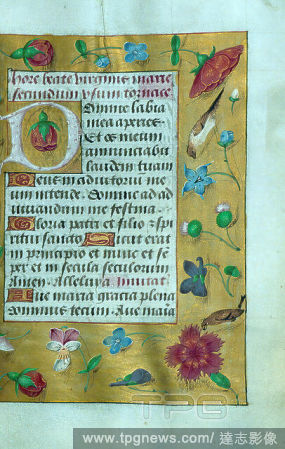 hore beate virginis marie
secundum usum tornace
Domine labia
mea aperies
Et os meum
annunciabit
laudem tuam
Deus in adiutoriu me
um intende Domine ad ad
iuuandum me festina
Gloria patri et filio et spi
ritui sancto Sicut erat
in principio et nunc et se
per et in secula seculorum
Amen Alleluya inuitat
Aue maria gracia plena
dominus tecum Aue maria
TPG
www.tpgnews.com/ 達志影像